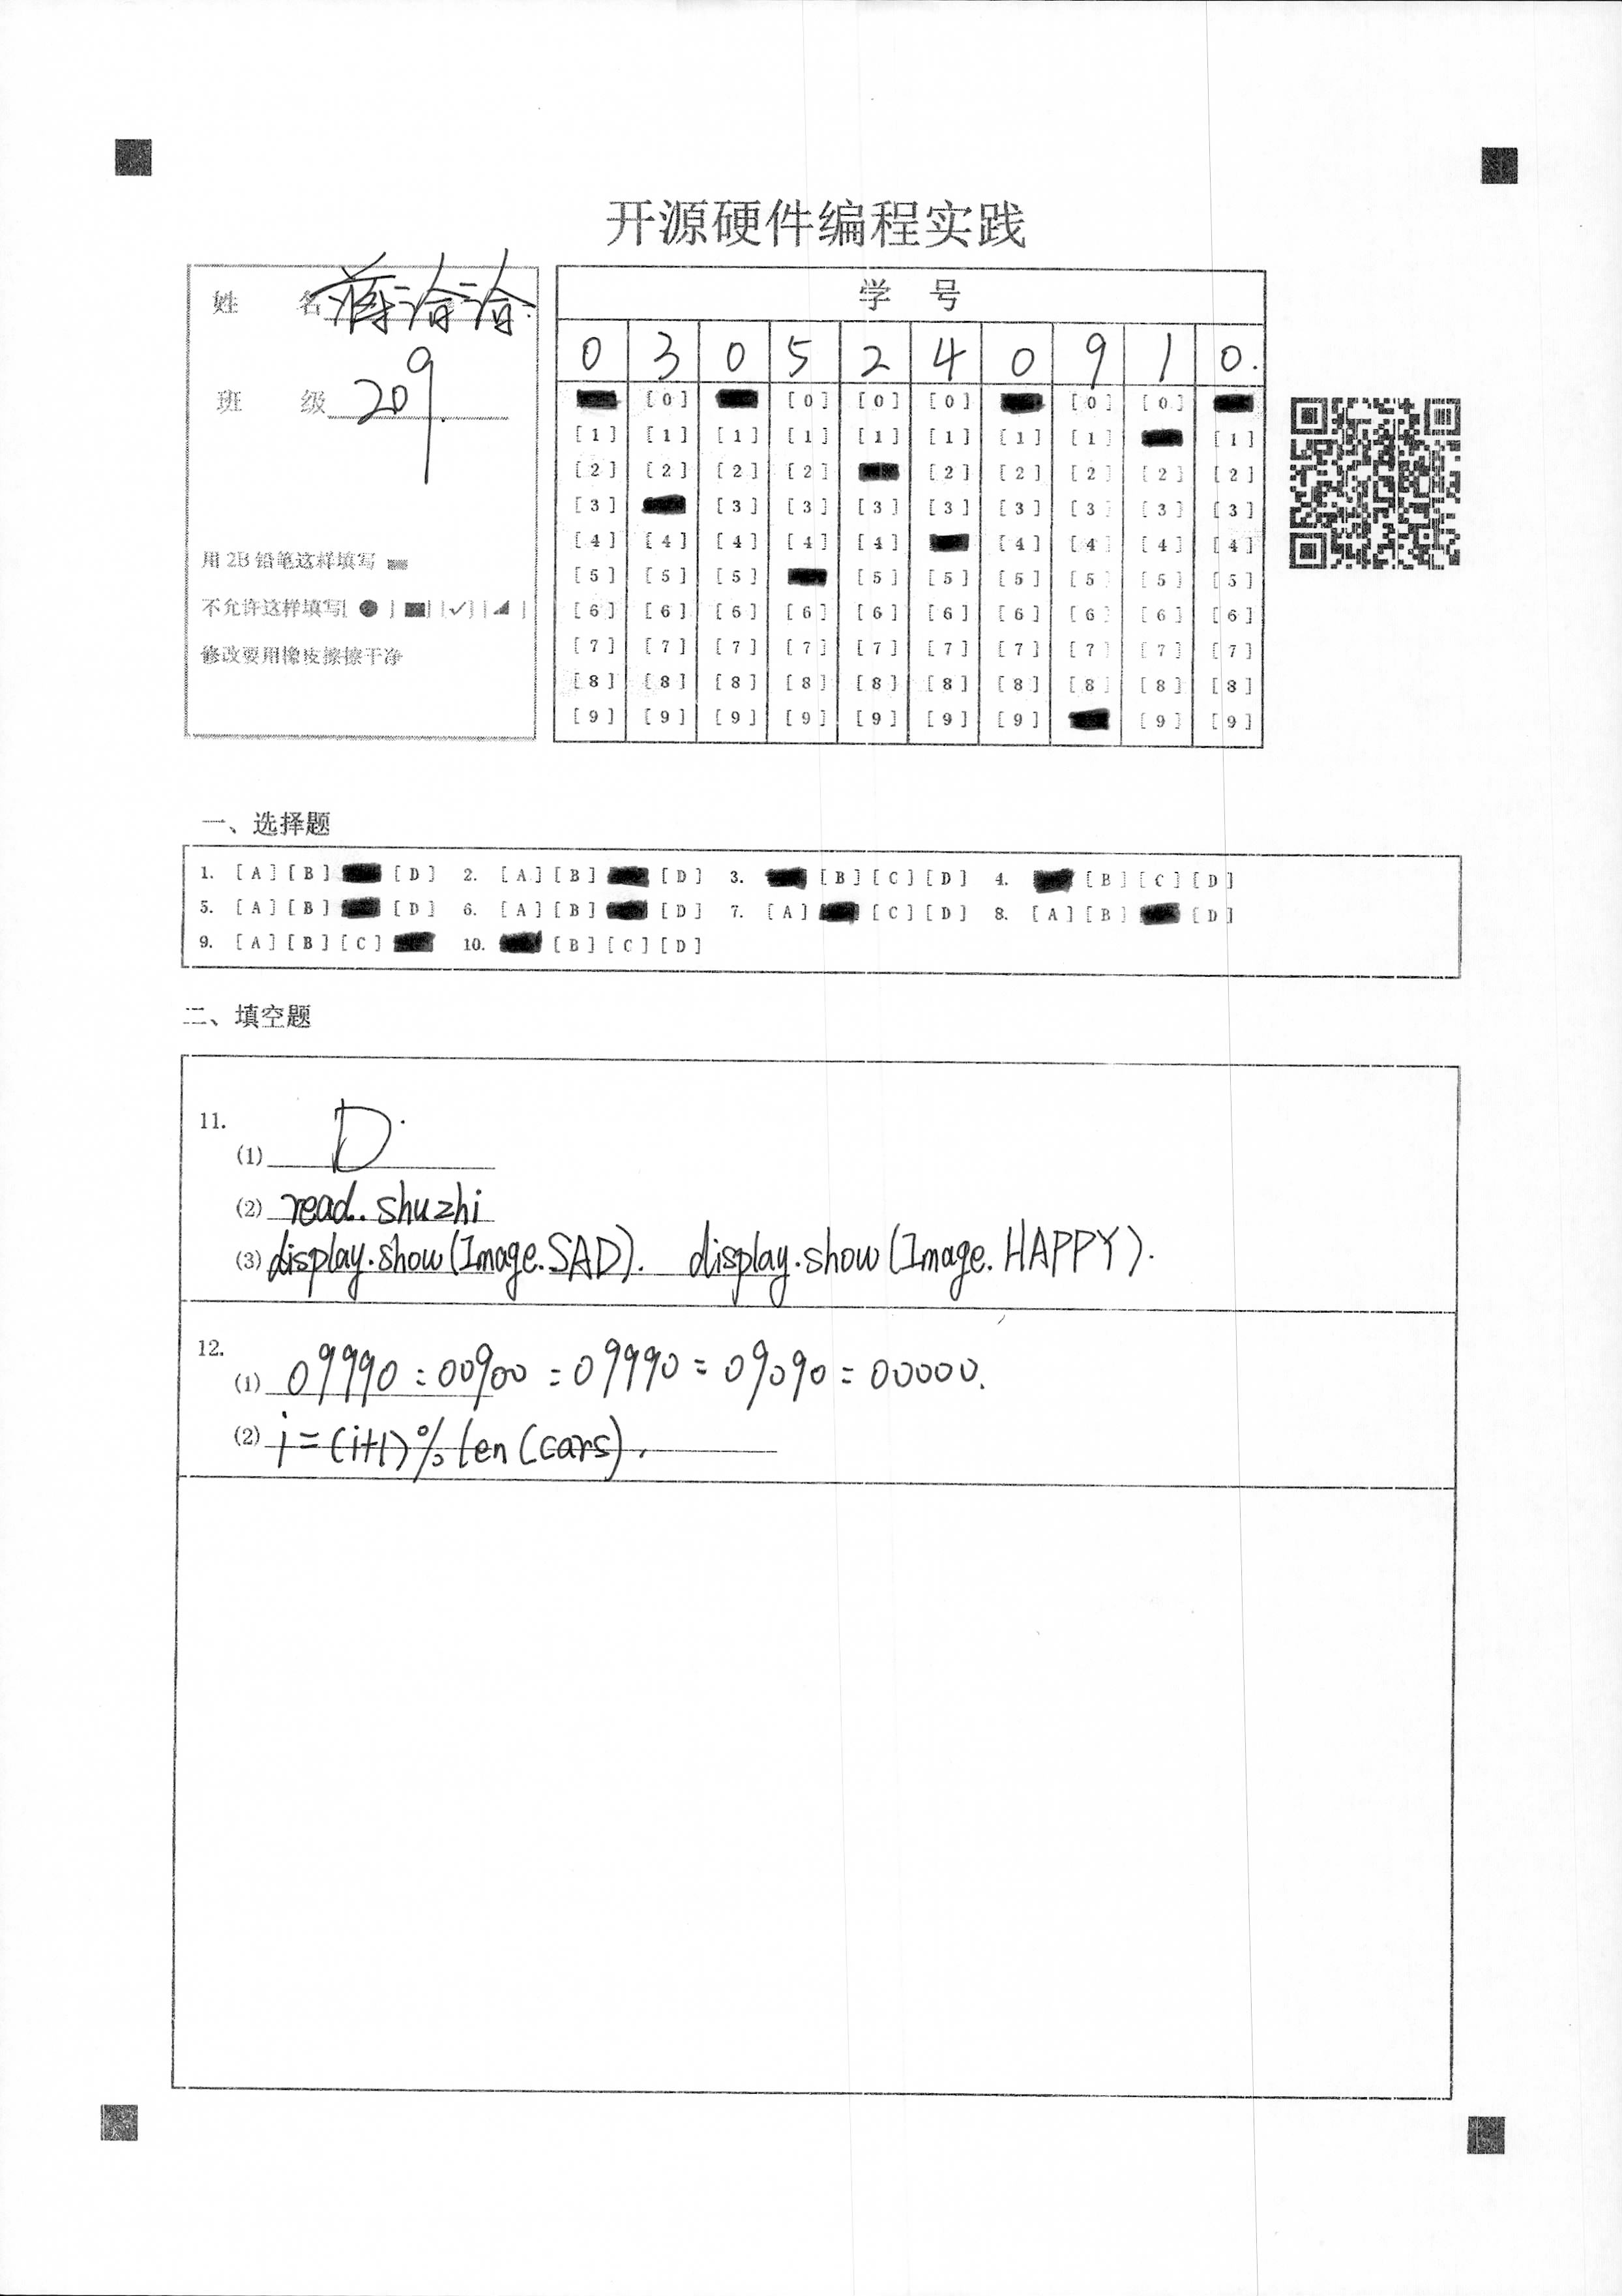 开源硬件编程实践
姓 名 蒋洽洽
班 级 209.
用2B铅笔这样填写
不允许这样填写[ ● ] [■] [✓] [◢]
修改要用橡皮擦擦干净
学 号
0 3 0 5 2 4 0 9 1 0.
[0] [0] [0] [0] [0] [0]
[1] [1] [1] [1] [1] [1] [1] [1] [1]
[2] [2] [2] [2] [2] [2] [2] [2] [2]
[3] [3] [3] [3] [3] [3] [3] [3] [3]
[4] [4] [4] [4] [4] [4] [4] [4] [4]
[5] [5] [5] [5] [5] [5] [5] [5] [5]
[6] [6] [6] [6] [6] [6] [6] [6] [6] [6]
[7] [7] [7] [7] [7] [7] [7] [7] [7] [7]
[8] [8] [8] [8] [8] [8] [8] [8] [8] [8]
[9] [9] [9] [9] [9] [9] [9] [9] [9]
一、选择题
1. [A] [B] [D] 2. [A] [B] [D] 3. [B] [C] [D] 4. [B] [C] [D]
5. [A] [B] [D] 6. [A] [B] [D] 7. [A] [C] [D] 8. [A] [B] [D]
9. [A] [B] [C] 10. [B] [C] [D]
二、填空题
11.
(1) D.
(2) read.shuzhi
(3) display.show(Image.SAD). display.show(Image.HAPPY).
12.
(1) 09990:00900:09990:09090:00000.
(2) i=(i+1)%len(cars).